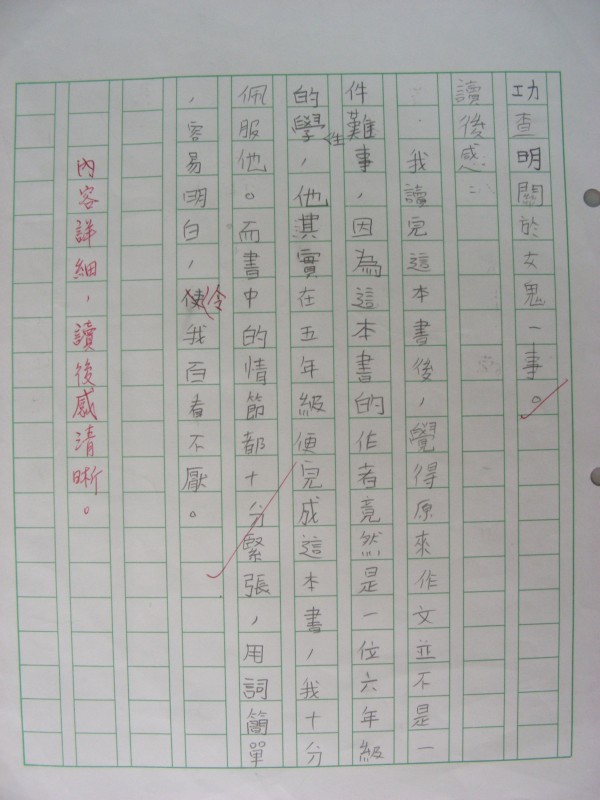 功查明關於女鬼一事。
讀後感：
我讀完這本書後，覺得原來作文並不是一
件難事，因為這本書的作者竟然是一位六年級
的學生，他其實在五年級便完成這本書，我十分
佩服他。而書中的情節都十分緊張，用詞簡單
，容易明白，使令我百看不厭。
內容詳細，讀後感清晰。